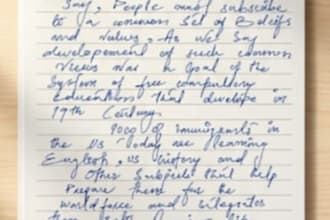 Say, People must subscribe
to a common set of Beliefs
and values. As we say
development of such common
views was a Goal of the
System of free compulsory
Education that develope in
19th Century.
90% of immigrants in
the US Today are learning
English, US history and
Other Subjects that help
Prepare them for the
workforce and integrates